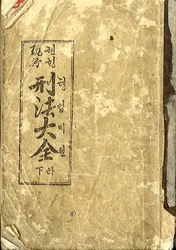 現行 현행
刑法大全 형법대전
下 하